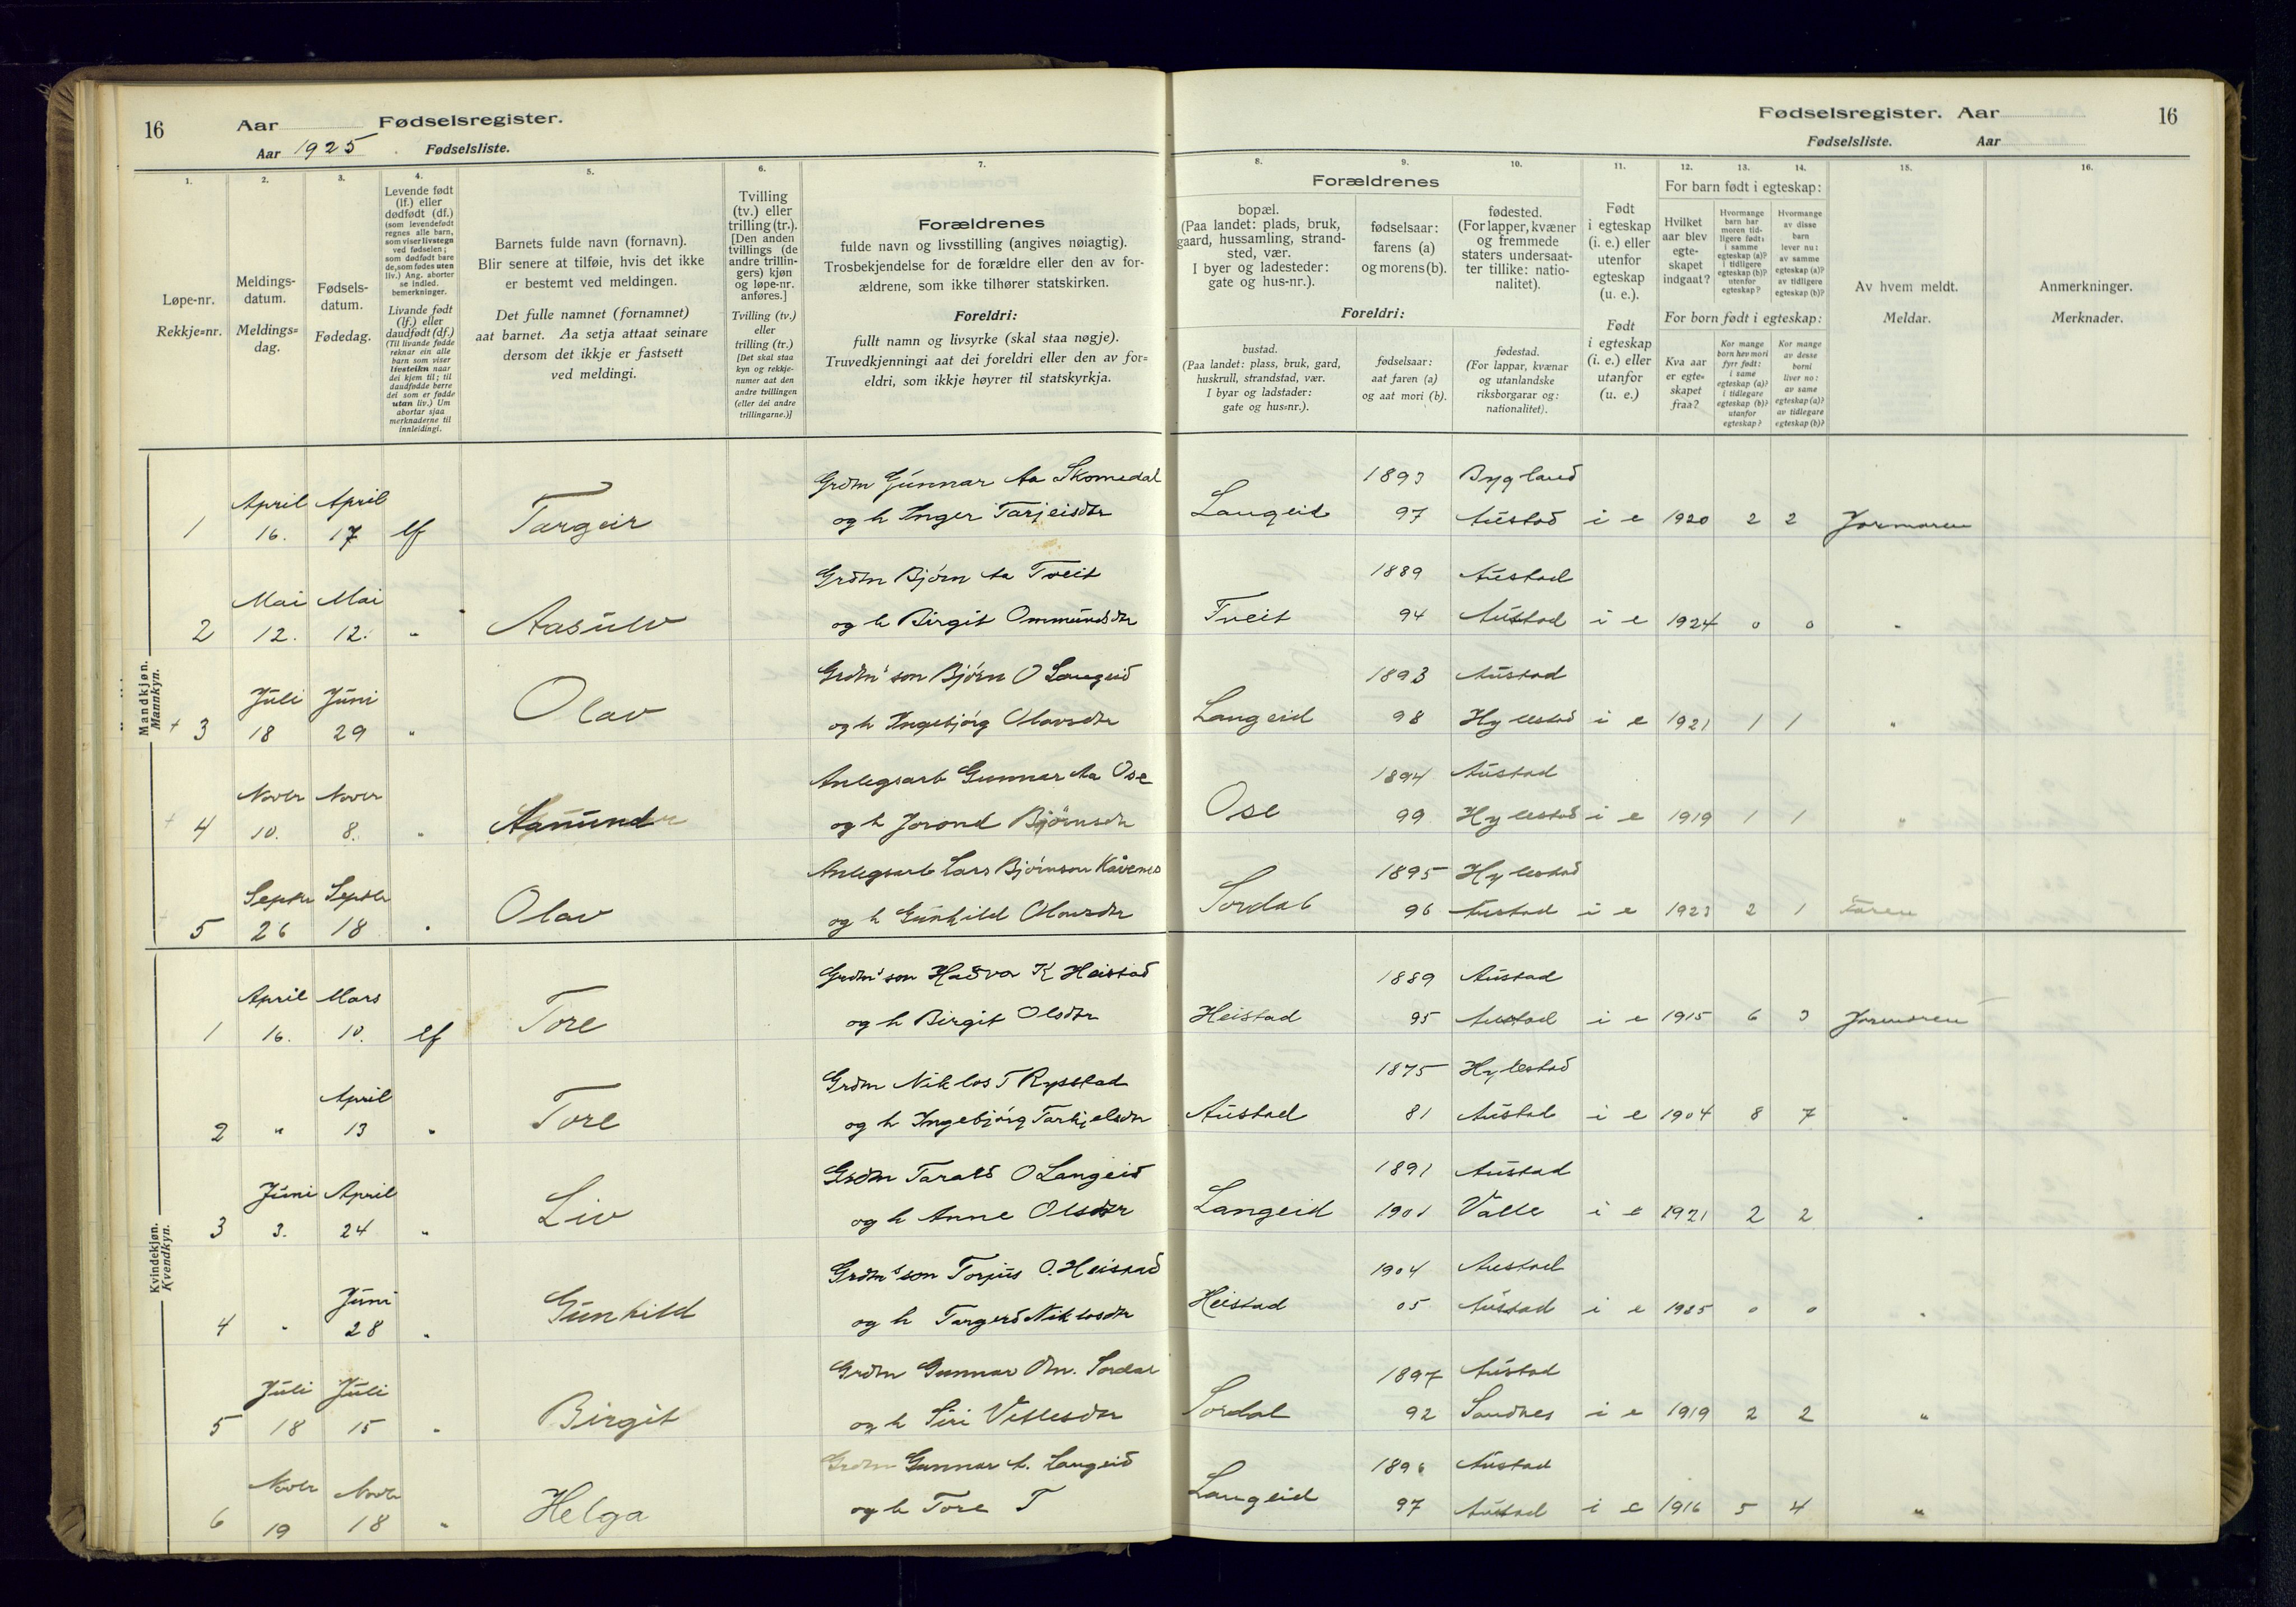 16
Aar Fødselsregister.
Aar 1925. Fødselsliste.
Fødselsregister. Aar
Fødselsliste. Aar
16
1. 2. 3. 4. 5. 6. 7. 8. 9. 10. 11. 12. 13. 14. 15. 16.
Løpe-nr.
Rekkje=nr.
Meldings-
datum.
Meldings=
dag.
Fødsels-
datum.
Fødedag.
Levende født
(lf.) eller
dødfødt (df.)
(som levendefødt
regnes alle barn,
som viser livstegn
ved fødselen;
som dødfødt bare
de, som fødes uten
liv.) Ang. aborter
se indled.
bemerkninger.
Livande født
(lf.) eller
daudfødt (df.)
(Til livande fødde
reknar ein alle
barn som viser
livsteikn naar
dei kjem til; til
daudfødde berre
dei som er fødde
utan liv.) Um
abortar sjaa
merknaderne til
innleidingi.
Barnets fulde navn (fornavn).
Blir senere at tilføie, hvis det ikke
er bestemt ved meldingen.
Det fulle namnet (fornamnet)
aat barnet. Aa setja attaat seinare
dersom det ikkje er fastsett
ved meldingi.
Tvilling
(tv.) eller
trilling (tr.).
[Den anden
tvillings (de
andre trillin-
gers) kjøn
og løpe-nr.
anføres.]
Tvilling (tv.)
eller
trilling (tr.)
[Det skal staa
kyn og rekkje-
numer aat den
andre tvillingen
(eller dei andre
trillingarne.)]
Forældrenes
fulde navn og livsstilling (angives nøiagtig).
Trosbekjendelse for de forældre eller den av for-
ældrene, som ikke tilhører statskirken.
Foreldri:
fullt namn og livsyrke (skal staa nøgje).
Truvedkjenningi aat dei foreldri eller den av for=
eldri, som ikkje høyrer til statskyrkja.
Forældrenes
bopæl.
(Paa landet: plads, bruk,
gaard, hussamling, strand-
sted, vær.
I byer og ladesteder:
gate og hus-nr.).
fødselsaar:
farens (a)
og morens (b).
fødested.
(For lapper, kvæner
og fremmede
staters undersaat-
ter tillike: natio-
nalitet).
Foreldri:
bustad.
(Paa landet: plass, bruk, gard,
huskrull, strandstad, vær.
I byar og ladstader:
gate og hus=nr.).
fødselsaar:
aat faren (a)
og aat mori (b).
fødestad.
(For lappar, kvænar
og utanlandske
riksborgarar og:
nationalitet).
Født
i egteskap
(i. e.) eller
utenfor
egteskap
(u. e.).
Født
i egteskap
(i. e.) eller
utanfor
(u. e.)
For barn født i egteskap:
Hvilket
aar blev
egte-
skapet
indgaat?
Hvormange
barn har
moren tid-
ligere født:
i samme
egteskap (a)?
i tidligere
egteskap (b)?
utenfor
egteskap?
Hvormange
av disse
barn
lever nu:
av samme
egteskap (a)?
av tidligere
egteskap (b)?
For born født i egteskap:
Kva aar
er egte=
skapet
fraa?
Kor mange
born hev mori
fyrr født:
i same
egteskap (a)?
i tidlegare
egteskap (b)?
utanfor
egteskap?
Kor mange
av desse
borni
liver no:
av same
egteskap (a)?
av tidlegare
egteskap (b)?
Av hvem meldt.
Meldar.
Anmerkninger.
Merknader.
Mandkjøn.
Mannkyn.
April April Grdm Gunnar Aa Skomedal 1893 Bygland
1 16. 17 lf Targeir og h Inger Tarjeisdtr Langeid 97 Austad i e 1920 2 2 Jormoren
Mai Mai Grdm Bjørn Aa Tveit 1889 Austad
2 12. 12. " Aasulv og h Birgit Ommundsdtr Tveit 94 Austad i e 1924 0 0 "
Juli Juni Grdm's son Bjørn O Langeid 1893 Austad
+ 3 18 29 " Olav og h Ingebjørg Olavsdtr Langeid 98 Hylestad i e 1921 1 1 "
Novbr Novbr Anlegsarb Gunnar Aa Ose 1894 Austad
+ 4 10. 8. " Aamund og h Jorond Bjørnsdtr Ose 99 Hylestad i e 1919 1 1 "
Septbr Septbr Anlegsarb Lars Bjørnson Kåvenes 1895 Hylestad
5 26 18 " Olav og h Gunhild Olavsdtr Sordal 96 Austad i e 1923 2 1 Faren
Kvindekjøn.
Kvendkyn.
April Mars Grdm's son Hadvor K Heistad 1889 Austad
1 16. 10. lf Tore og h Birgit Olsdtr Heistad 95 Austad i e 1915 6 3 Jormoren
April Grdm Niklos T Rysstad 1875 Hylestad
2 " 13 " Tore og h Ingebjørg Tarkjelsdtr Austad 81 Austad i e 1904 8 7 "
Juni April Grdm Tarald O Langeid 1891 Austad
3 3. 24 " Liv og h Anne Olsdtr Langeid 1901 Valle i e 1921 2 2 "
Juni Grdm's son Torjus O. Heistad 1904 Austad
4 " 28 " Gunhild og h Targerd Niklosdtr Heistad 05 Austad i e 1925 0 0 "
Juli Juli Grdm Gunnar Om. Sordal 1897 Austad
5 18 15 " Birgit og h Siri Vetlesdtr Sordal 92 Sandnes i e 1919 2 2 "
Novbr Novbr Grdm Gunnar A. Langeid 1896 Austad
6 19 18 " Helga og h Tore T Langeid 97 Austad i e 1916 5 4 "